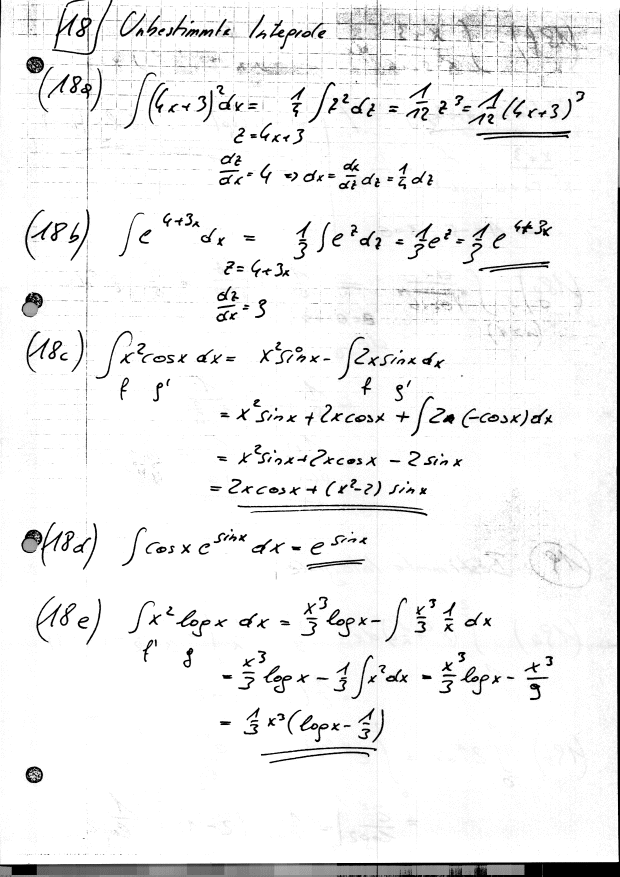 18 Unbestimmte Integrale
(18a) ∫(4x+3)²dx = 1/4 ∫z²dz = 1/12 z³ = 1/12 (4x+3)³
z=4x+3
dz/dx = 4 ⇒ dx = dx/dz dz = 1/4 dz
(18b) ∫e^{4+3x}dx = 1/3 ∫e^z dz = 1/3 e^z = 1/3 e^{4+3x}
z=4+3x
dz/dx = 3
(18c) ∫x²cosx dx = x²sinx - ∫2x sinx dx
f g' f g'
= x² sinx + 2x cosx + ∫2 (-cosx)dx
= x²sinx+2xcosx - 2 sinx
= 2x cosx + (x²-2) sinx
(18d) ∫cosx e^{sinx} dx = e^{sinx}
(18e) ∫x² logx dx = x³/3 logx - ∫ x³/3 1/x dx
f' g
= x³/3 logx - 1/3 ∫x²dx = x³/3 logx - x³/9
= 1/3 x³(logx - 1/3)